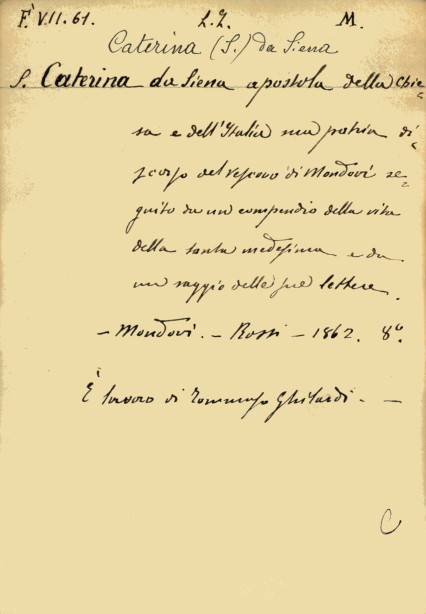 F. VII. 61. L. L. M.
Caterina (S.) da Siena
S. Caterina da Siena apostola della Chie=
sa e dell'Italia sua patria di=
scorso del Vescovo di Mondovì se=
guito da un compendio della vita
della santa medesima e da
un saggio delle sue lettere.
– Mondovì. – Rossi – 1862. 8º.
È lavoro di Tommaso Ghilardi. –
C